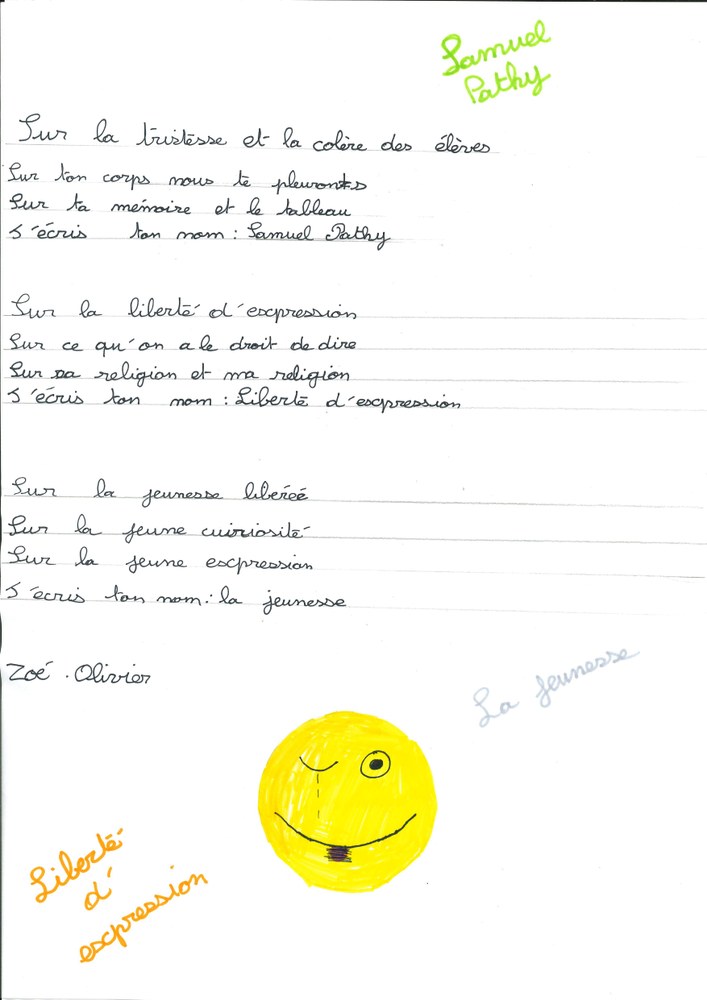 Samuel
Pathy
Sur la tristesse et la colère des élèves
Sur ton corps nous te pleurons
Sur ta mémoire et le tableau
J'écris ton nom : Samuel Pathy
Sur la liberté d'expression
Sur ce qu'on a le droit de dire
Sur sa religion et ma religion
J'écris ton nom : Liberté d'expression
Sur la jeunesse libéréé
Sur la jeune cuiriosité
Sur la jeune expression
J'écris ton nom : la jeunesse
Zoé . Olivier
La jeunesse
Liberté
d'
expression